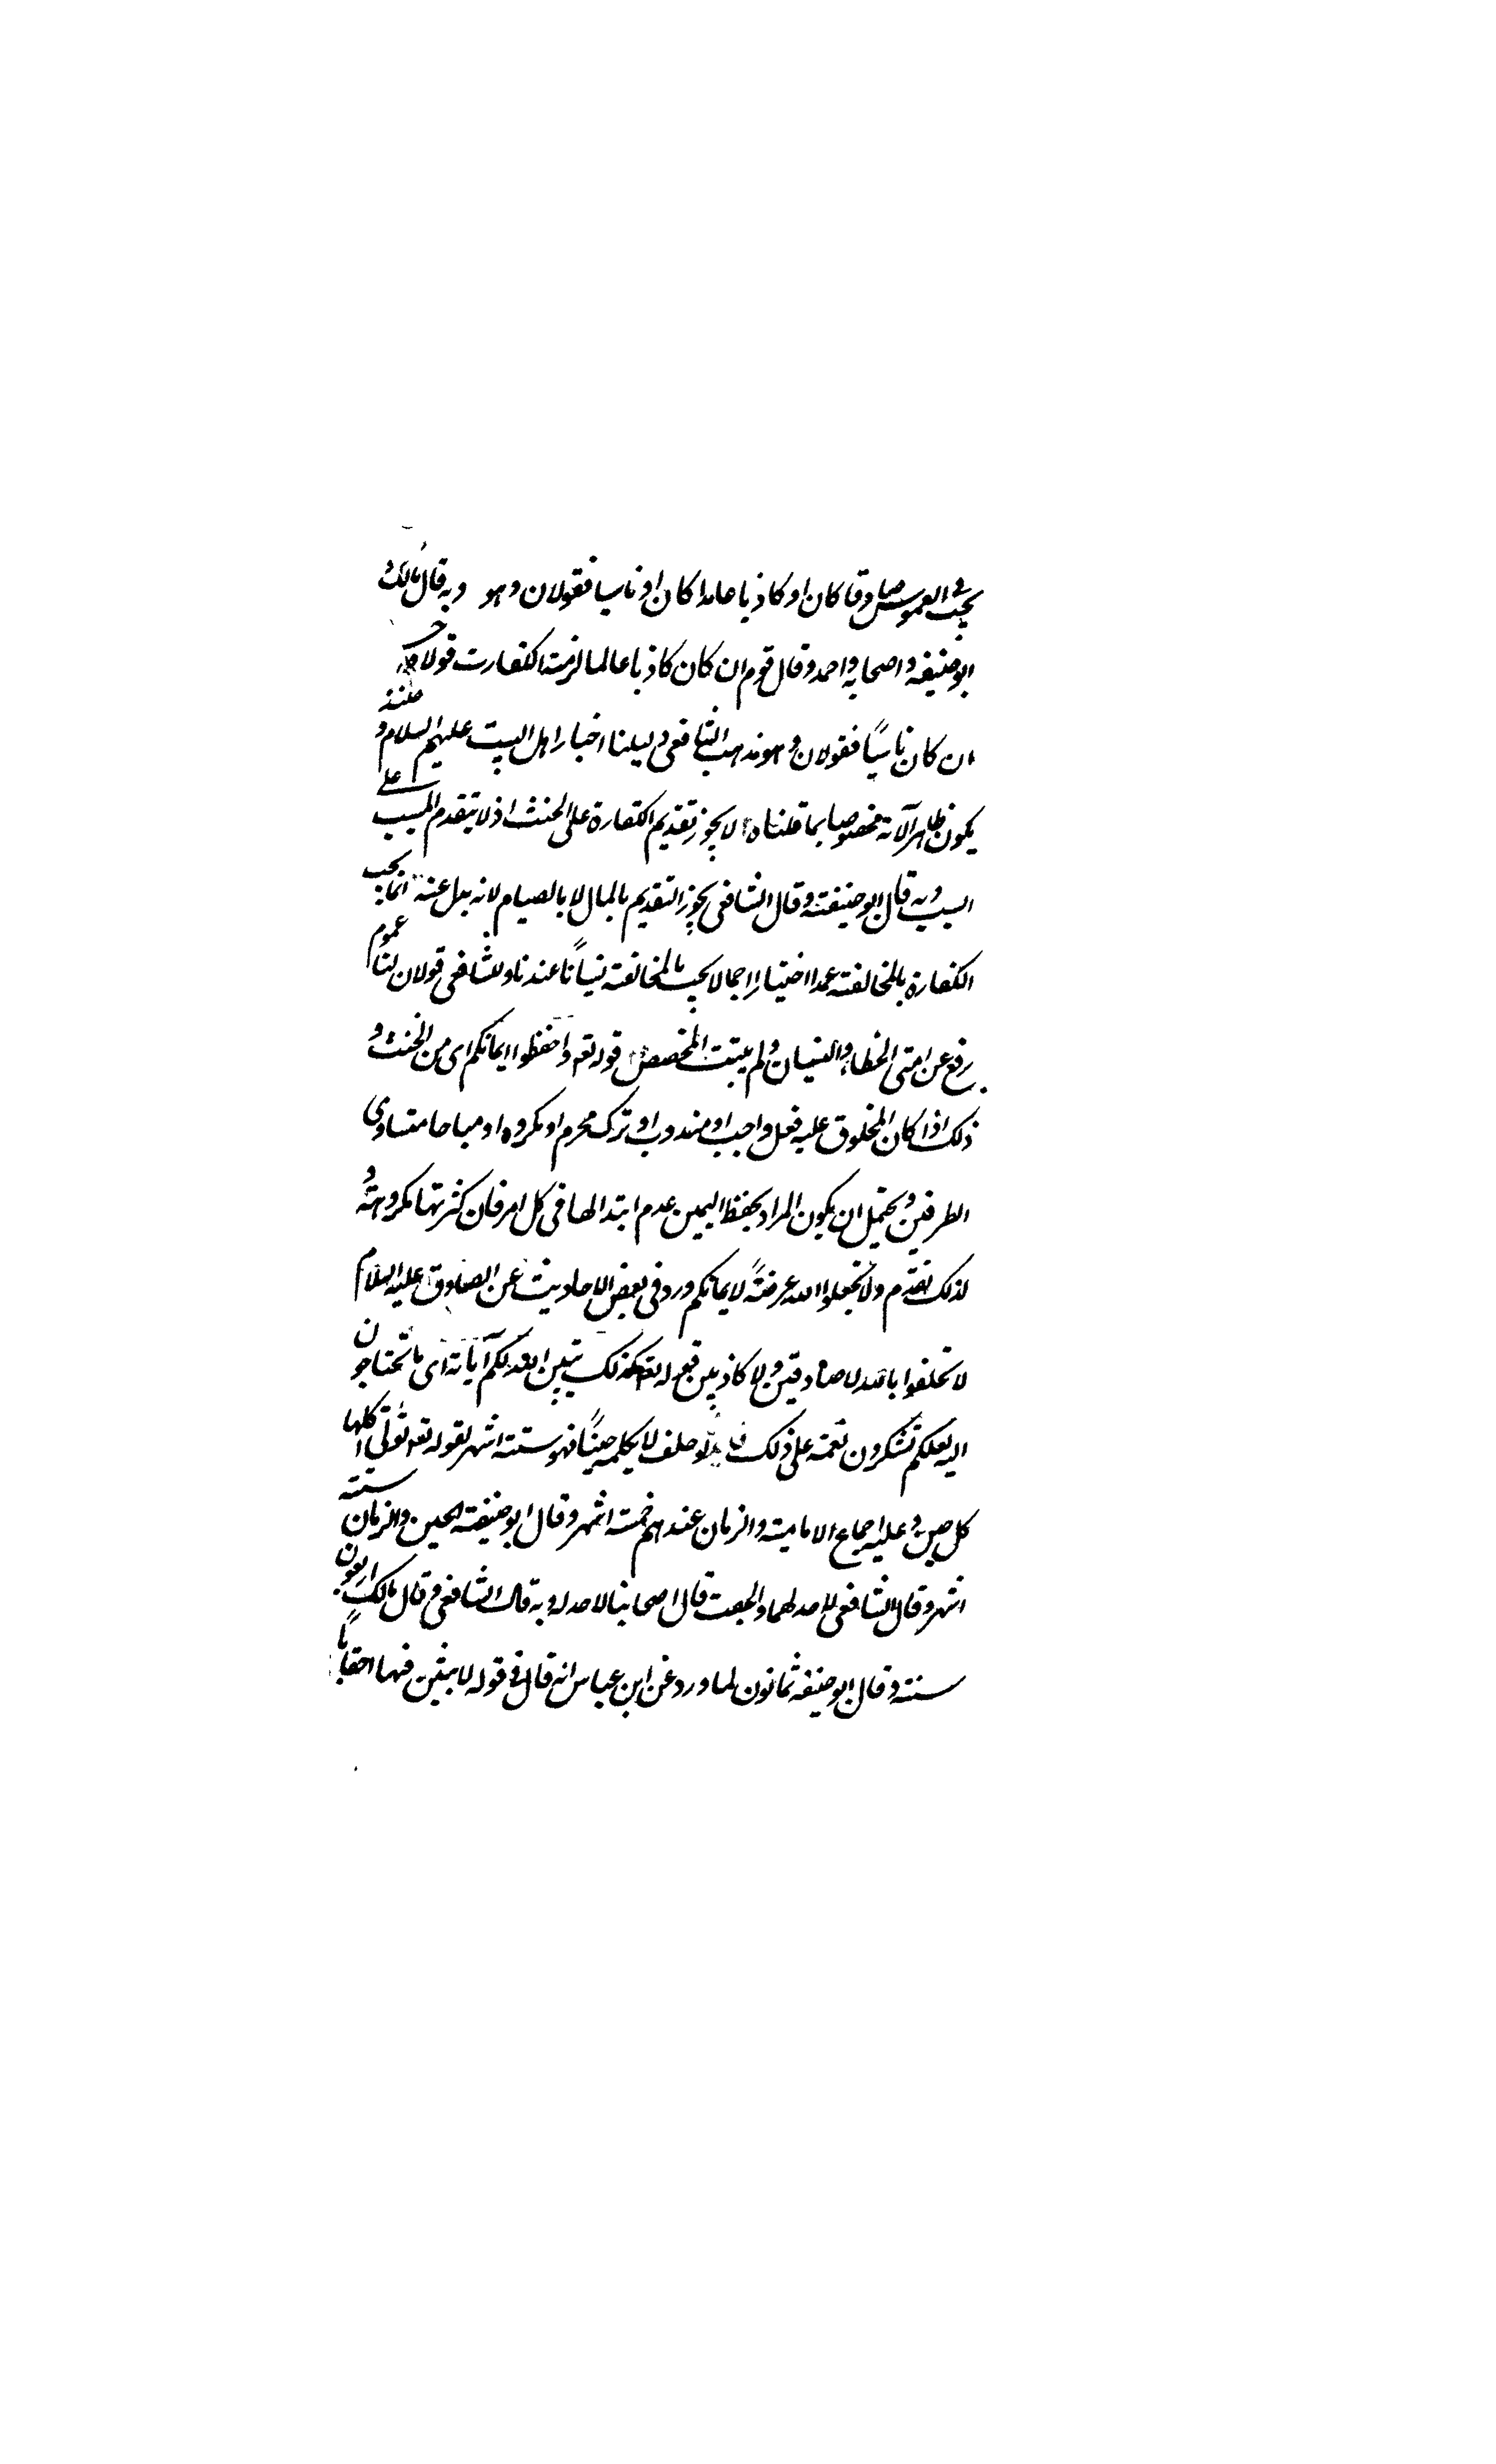 يجب في الغموس صادقا كان او كاذبا عامدا كان او ناسيا فقولان وهو وبه قال مالك و
ابو حنيفه واصحابه واحمد وقال قوم ان كان كاذبا عالما لزمته الكفارت قولا واحدا
ان كان ناسيًا فقولان وهو مذهب الشافعي دليلنا اخبار اهل البيت عليهم السلام و
يكون ظاهر الآية مخصوصا بما قلناه الا يجوز تقديم الكفارة على الحنث اذ لا يتقدم المسبب على
السبب وبه قال ابو حنيفته وقال الشافعي يجوز التقديم بالمال لا بالصيام لانه بدل عنه انما يجب
الكفارة بالمخالفته عمدا اختيارا اجمالا يجب بالمخالفته نسيانًا عندنا وللشافعي قولان لنا عموم
رفع عن امتي الخطاء والنسيان ولم يثبت المخصص قوله تعه واحفظوا ايمانكم اى من الحنث و
ذلك اذا كان المحلوق عليه فعل واجب او مندوب او ترك محرم او مكروه او مباحا متساوى
الطرفين ويحتمل ان يكون المراد بحفظ اليمين عدم ابتدالها في كل امر فان كثرتها مكروهته و
لذلك تقدم ولا تجعلوا الله عرضتهً لايمانكم ورد في بعض الاحاديث عن الصادق عليه السلام
لا تحلفوا بالله لا صادقين ولا كاذبين قوله تعه كذلك يبين الله لكم آياته اى ما تحتاجون
اليه لعلكم تشكرون نعمته على ذلك لو حلف لا يكلمه حينًا فهو ستته اشهر لقوله تعه تؤتي اكلها
كل حين وعليه اجماع الاماميته والزمان عندهم خمسته اشهر وقال ابو حنيفته الحين والزمان ستته
اشهر وقال الشافعي لا حد لهما والحقب قال اصحابنا لا حد له وبه قال الشافعي وقال مالك اربعون
سنته وقال ابو حنيفه ثمانون لما ورد عن ابن عباس انه قال في قوله لابثين فيها احقابًا